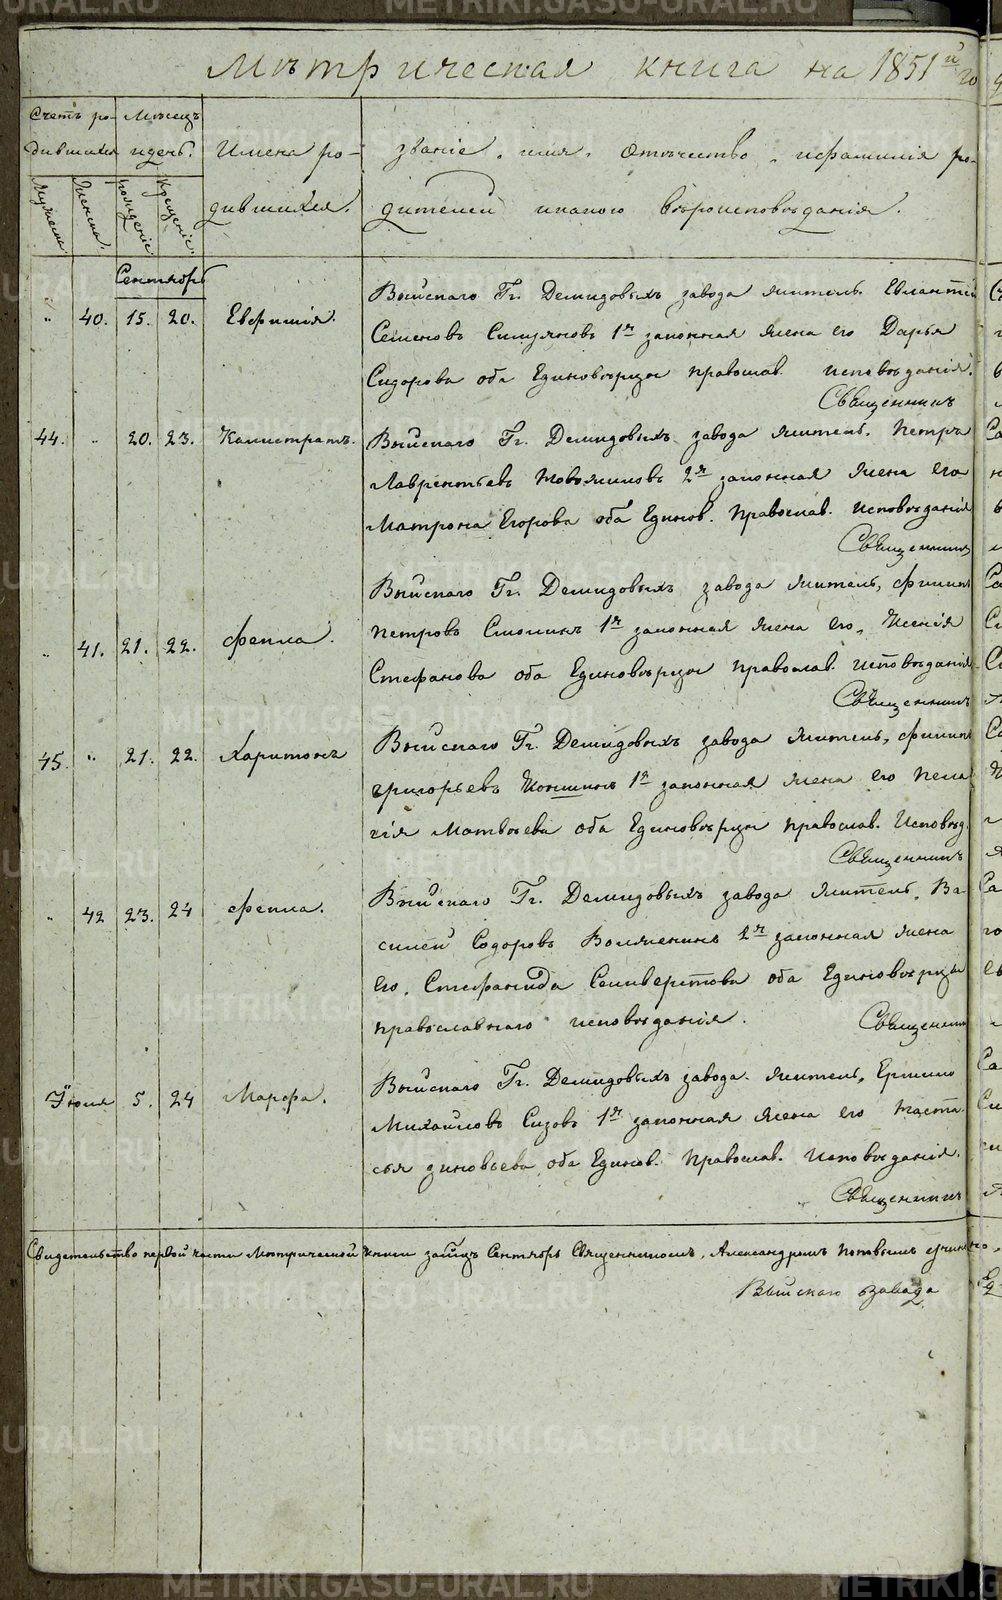 Метрическая книга на 1851й го
Счетъ ро- Мѣсяцъ
дившихся и день. Имена ро- званіе, имя, отечество, и фамилія ро-
Мужеска Женска. рожденіе Крещеніе. дившихся. дителей и какого вѣроисповѣданія.
Сентябрь
" 40. 15. 20. Евфимія. Выйскаго Гг. Демидовыхъ завода житель
Семеновъ 1я законная жена его Дарья
Сидорова оба Единовѣрцы православ. исповѣданія.
Священникъ
44. " 20. 23. Калистратъ. Выйскаго Гг. Демидовыхъ завода житель, Петръ
Лаврентьевъ 2я законная жена его
Матрона Егорова оба Единов. Православ. исповѣданія
Священникъ
Выйскаго Гг. Демидовыхъ завода житель, Филипъ
" 41. 21. 22. Фекла. Петровъ 1я законная жена его, Ксенія
Стефанова оба Единовѣрцы православ. исповѣданія
Священникъ
45. " 21. 22. Харитонъ Выйскаго Гг. Демидовыхъ завода житель, Филипъ
Григорьевъ 1я законная жена его Пела
гія Матвѣева оба Единовѣрцы православ. Исповѣд.
Священникъ
" 42 23. 24 Фекла. Выйскаго Гг. Демидовыхъ завода житель, Ва
силей Ѳодоровъ Волженинъ 2я законная жена
его, Стефанида Селиверстова оба Единовѣрцы
православнаго исповѣданія. Священникъ
Іюля 5. 24 Марфа. Выйскаго Гг. Демидовыхъ завода житель, Ермило
Михайловъ Сизовъ 1я законная жена его Наста
сья Зиновьева, оба Единов. Православ. Исповѣданія.
Священникъ
Свидетельство первой части Метрической книги за мцъ Сентябрь Священникомъ, Александромъ Поповымъ
Выйскаго завода
METRIKI.GASO-URAL.RU